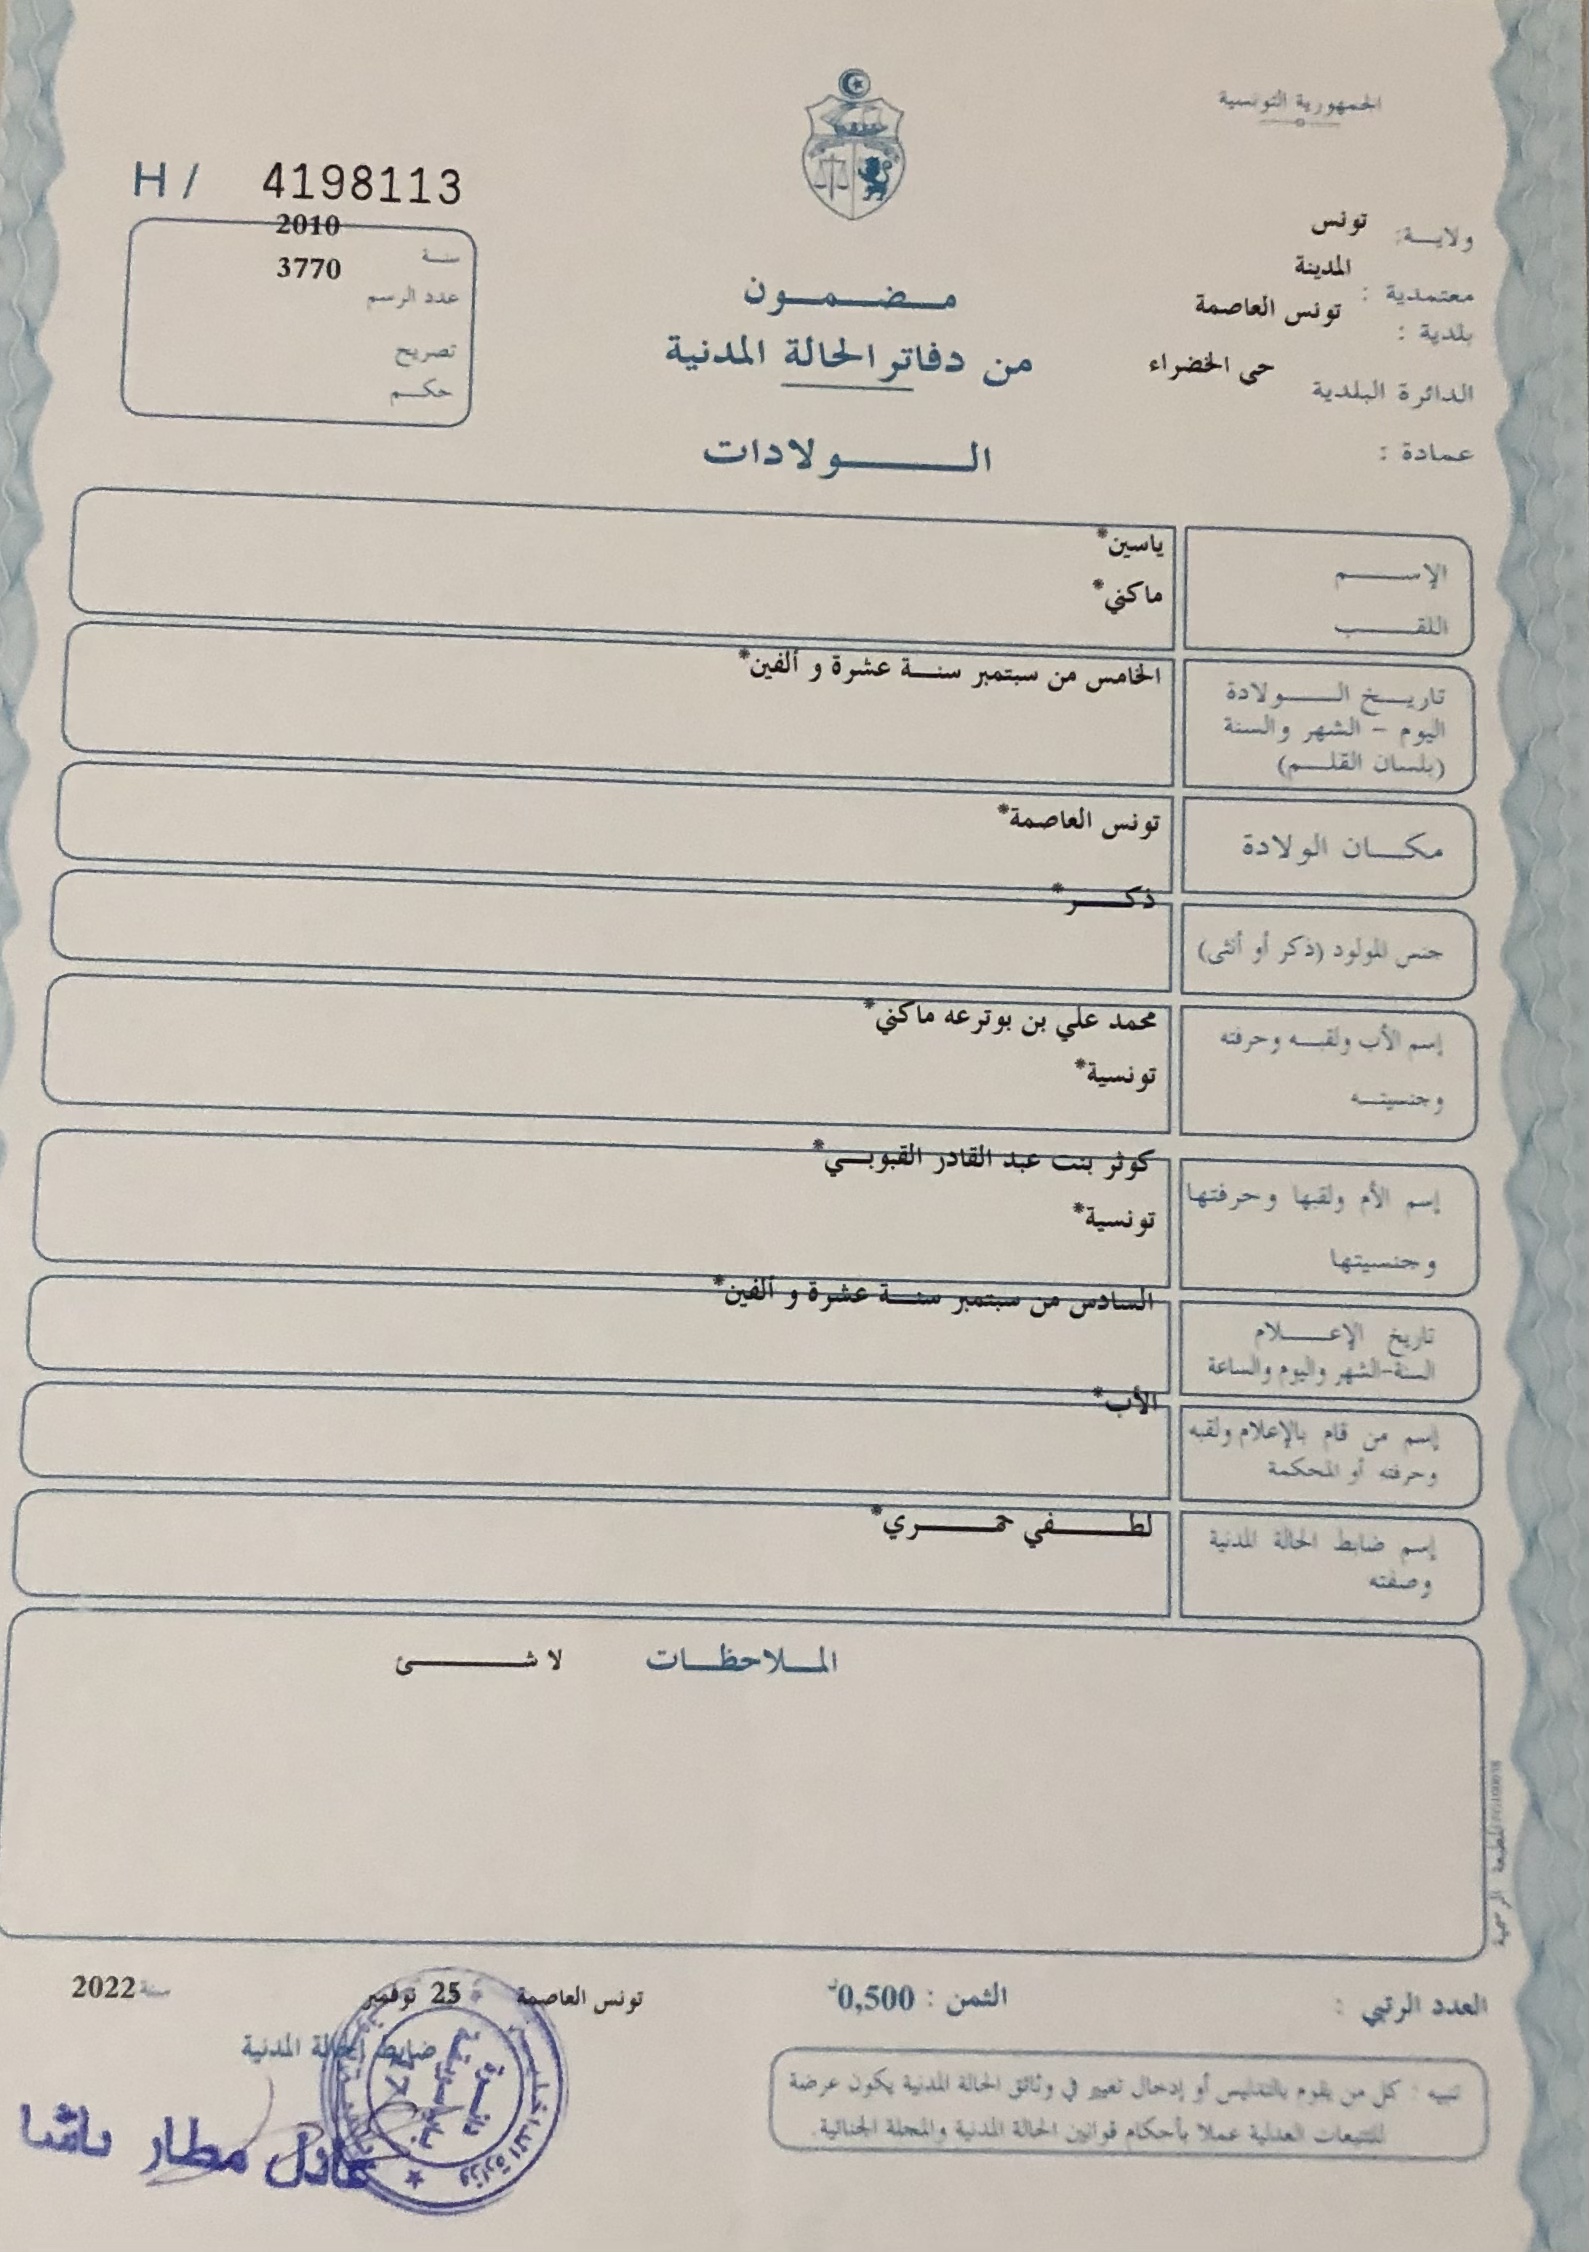 الجمهورية التونسية
H / 4198113
ولايـــة: تونس
معتمدية : المدينة
بلدية : تونس العاصمة
الدائرة البلدية حى الخضراء
عمادة :
سنـة 2010
عدد الرسم 3770
تصريح
حكـــم
مـــضـــمـــون
من دفاتر الحالة المدنية
الـــــــولادات
الإســـــــم ياسين*
اللقـــــــب ماكني*
تاريـــخ الـــــولادة الخامس من سبتمبر سنـــة عشرة و ألفين*
اليوم - الشهر والسنة
(بلسان القلـــم)
مكـــان الولادة تونس العاصمة*
جنس المولود (ذكر أو أنثى) ذكـــــر*
إسم الأب ولقبـــه وحرفته محمد علي بن بوترعه ماكني*
وجنسيتـــه تونسية*
إسم الأم ولقبها وحرفتها كوثر بنت عبد القادر القبوبـــي*
وجنسيتها تونسية*
تاريخ الإعـــــلام السادس من سبتمبر سنـــة عشرة و ألفين*
السنة-الشهر واليوم والساعة
إسم من قام بالإعلام ولقبه الأب*
وحرفته أو المحكمة
إسم ضابط الحالة المدنية لطـــــــفي حمـــــــري*
وصفته
المـــلاحظـــات لا شـــــــئ
المطبعة الرسمية
العدد الرتبي :
الثمن : 0,500د
تونس العاصمة 25 نوفمبر سنة 2022
ضابط الحالة المدنية
تنبيه : كل من يقوم بالتدليس أو إدخال تغيير في وثائق الحالة المدنية يكون عرضة
للتتبعات العدلية عملا بأحكام قوانين الحالة المدنية والمجلة الجنائية.
وزارة الداخلية
عادل مطار باشا